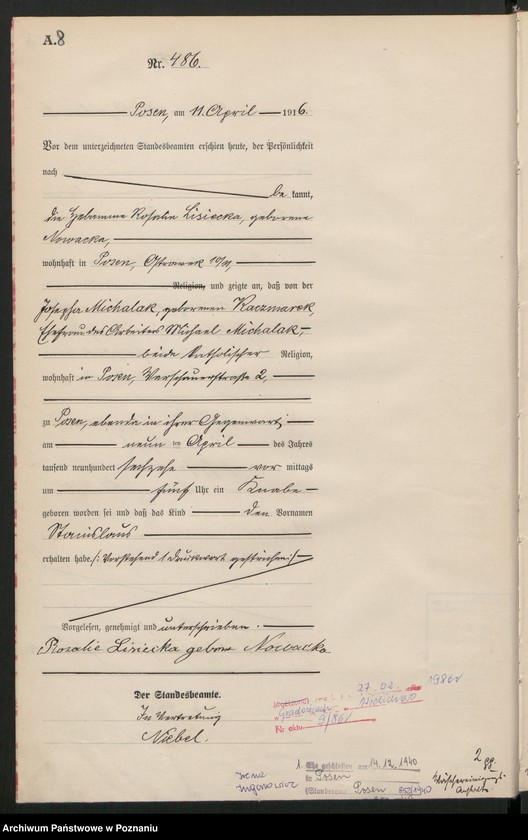 A.8
Nr. 486.
Posen, am 11. April 1916.
Vor dem unterzeichneten Standesbeamten erschien heute, der Persönlichkeit
nach
be kannt,
die Hebamme Rosalie Lisiecka, geborene
Nowacka,
wohnhaft in Posen, Ostrowek 10/11,
Religion, und zeigte an, daß von der
Josepha Michalak, geborenen Kaczmarek,
Ehefrau des Arbeiters Michael Michalak,
beide katholischer Religion,
wohnhaft in Posen, Warschauerstraße 2,
zu Posen, ebenda in ihrer Gegenwart
am neun ten April des Jahres
tausend neunhundert sechzehn vor mittags
um fünf Uhr ein Knabe
geboren worden sei und daß das Kind den Vornamen
Stanislaus
erhalten habe. /: Vorstehend 1 Druckwort gestrichen :/
Vorgelesen, genehmigt und unterschrieben.
Rosalie Lisiecka geborene Nowacka
Der Standesbeamte.
In Vertretung
Niebel.
27. 02. 1986r
Nr aktu 9/86/
1. Ehe geschlossen am 14. 12. 1940
in Posen
(Standesamt Posen
Irena
Archiwum Państwowe w Poznaniu